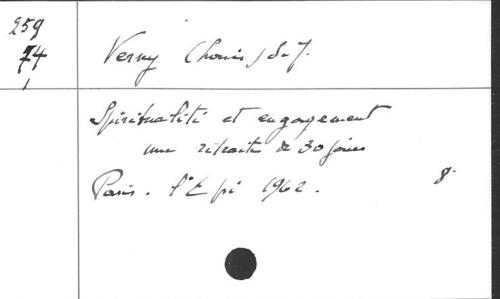 259
74
1
Verny (Louis) S.J.
Spiritualité et engagement
une retraite de 30 jours
Paris. l'Epi 1962. 8°